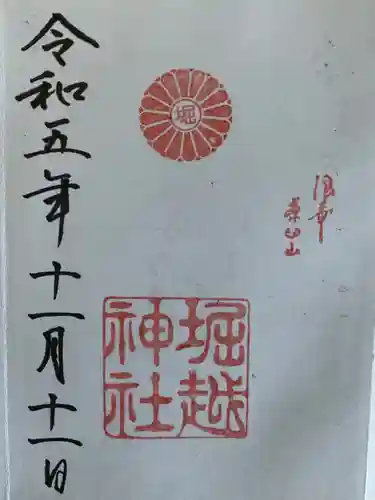 令和五年十一月十一日
堀
堀越
神社